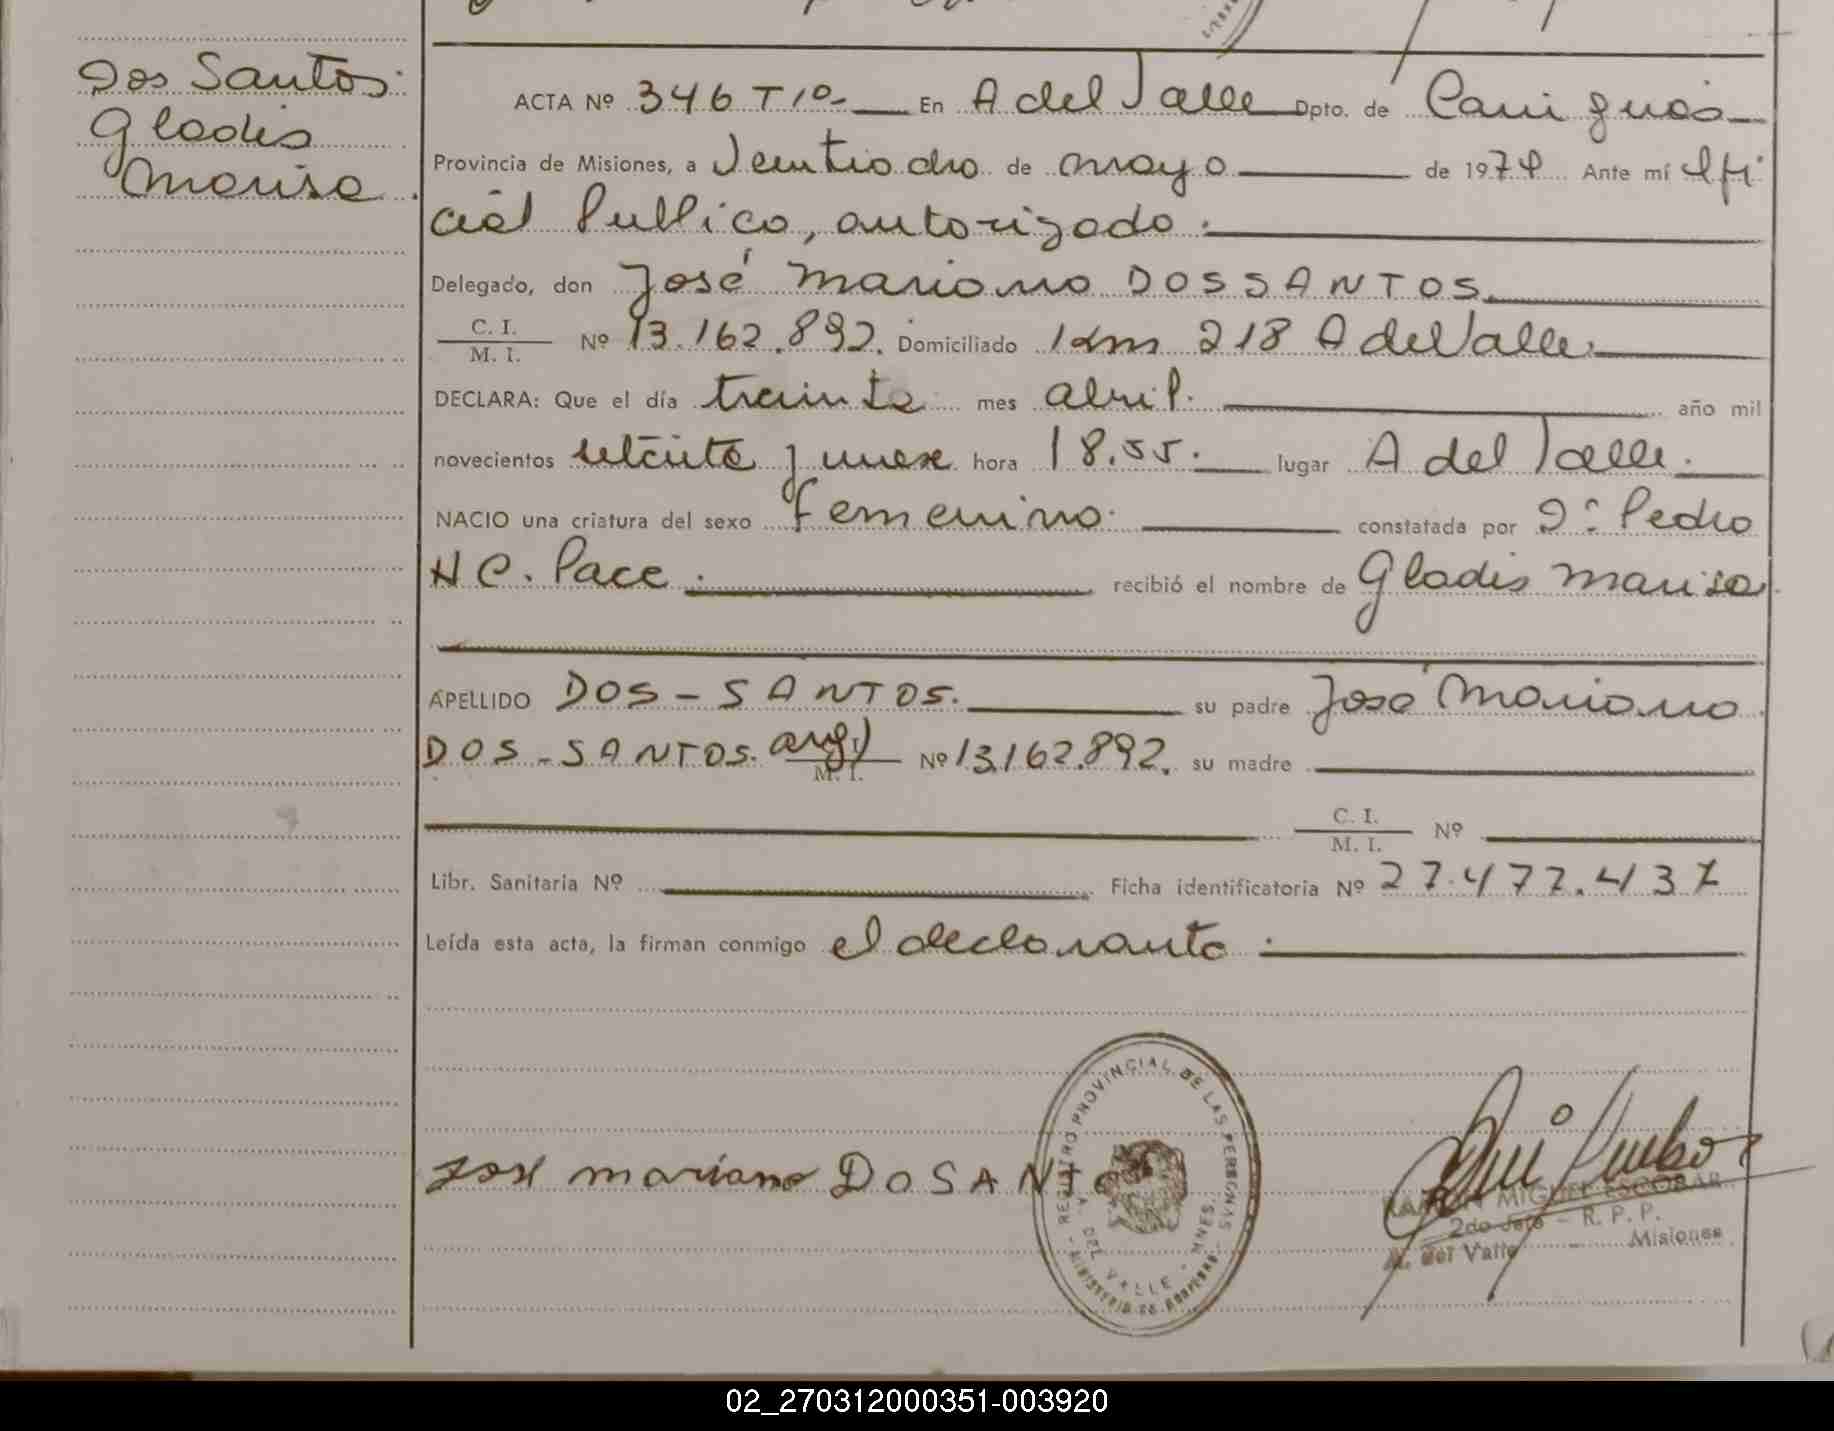 Dos Santos
Gladis
Marisa
ACTA Nº 346 T 1º En A del Valle Dpto. de Cainguás
Provincia de Misiones, a Veintiocho de mayo de 1979 Ante mí Ofi
cial Publico, autorizado.
Delegado, don José Mariano DOS SANTOS
C. I.
M. I. Nº 13.162.892. Domiciliado Km 218 A del Valle.
DECLARA: Que el día treinta mes abril. año mil
novecientos setenta y nueve hora 18.55. lugar A del Valle.
NACIO una criatura del sexo femenino. constatada por Dr Pedro
H C. Pace. recibió el nombre de Gladis Marisa
APELLIDO DOS - SANTOS. su padre José Mariano
DOS - SANTOS. arg) M. I. Nº 13.162.892. su madre
C. I.
M. I. Nº
Libr. Sanitaria Nº Ficha identificatoria Nº 27.477.437
Leída esta acta, la firman conmigo el declarante.
José mariano DOSANTO
REGISTRO PROVINCIAL DE LAS PERSONAS
A. DEL VALLE - MNES.
MINISTERIO DE GOBIERNO
RAMON MIGUEL ESCOBAR
2do Jefe - R. P. P.
A. del Valle - Misiones
02_270312000351-003920